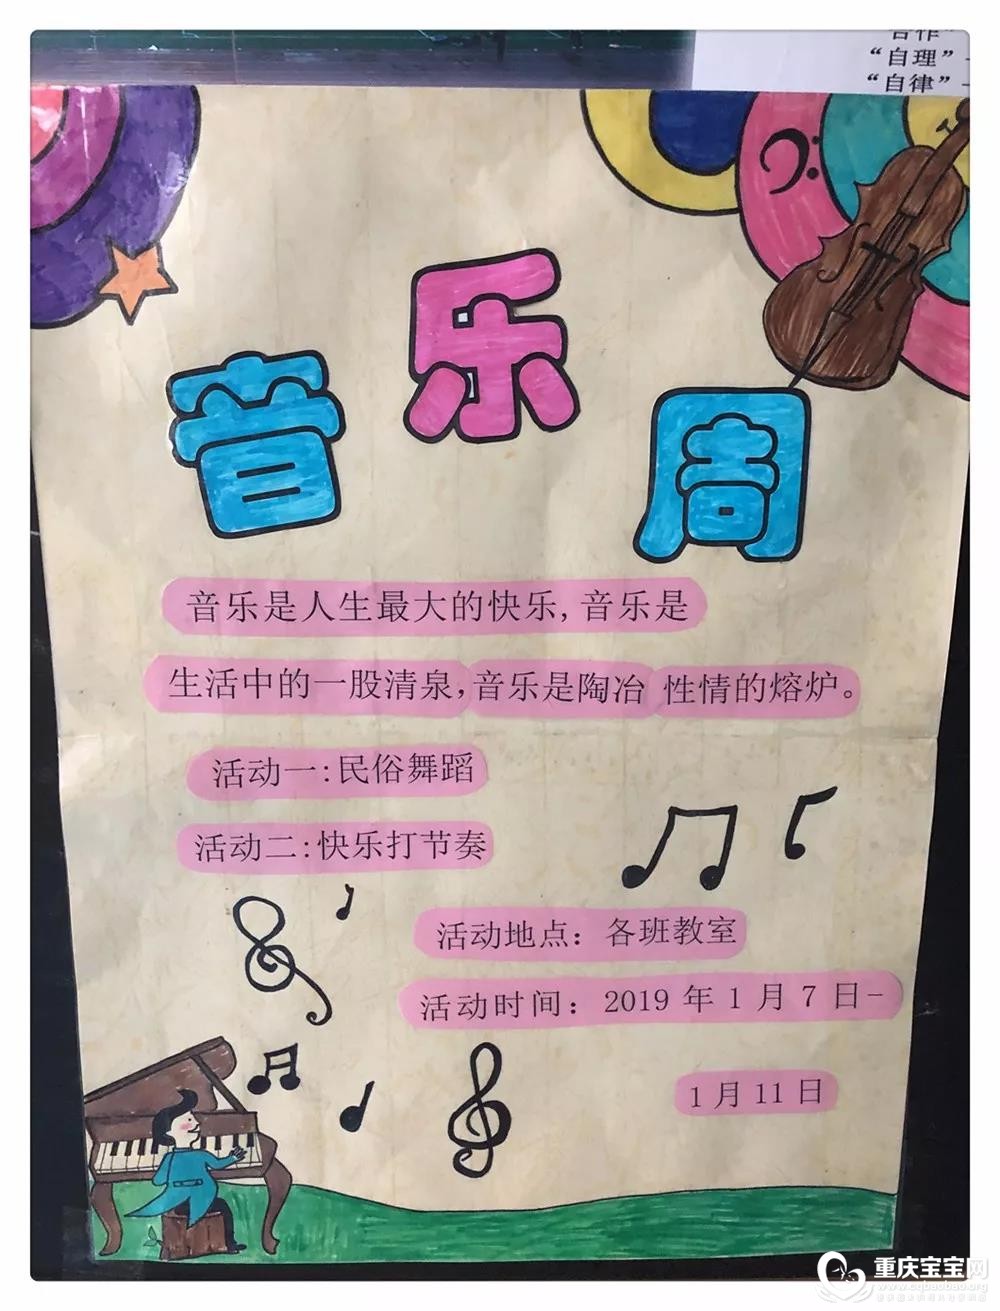 “自理”
“自律”
音乐周
音乐是人生最大的快乐,音乐是
生活中的一股清泉,音乐是陶冶性情的熔炉。
活动一:民俗舞蹈
活动二:快乐打节奏
活动地点：各班教室
活动时间：2019年1月7日-
1月11日
重庆宝宝网
www.cqbaobao.org